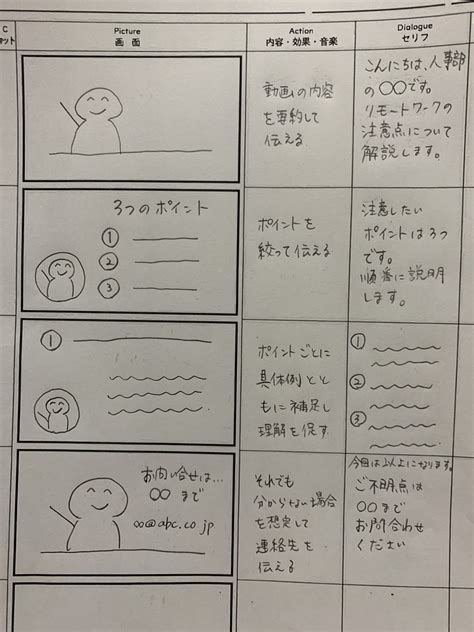 C
カット
Picture
画面
Action
内容・効果・音楽
Dialogue
セリフ
動画の内容
を要約して
伝える
こんにちは、人事部
の○○です。
リモートワークの
注意点について
解説します。
3つのポイント
①
②
③
ポイントを
絞って伝える
注意したい
ポイントは3つ
です。
順番に説明
します。
①
ポイントごとに
具体例とと
もに補足し
理解を促す
①
②
③
お問い合せは…
○○まで
oo@abc.co.jp
それでも
分からない場合
を想定して
連絡先を
伝える
今回は以上になります。
ご不明点は
○○まで
お問合わせ
ください